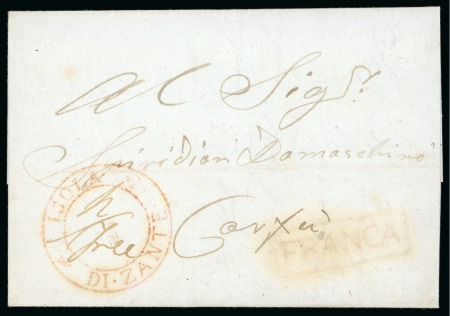 Al Sigr.
Spiridion Damaschino
Corfu
DI·ZANTE
FRANCA